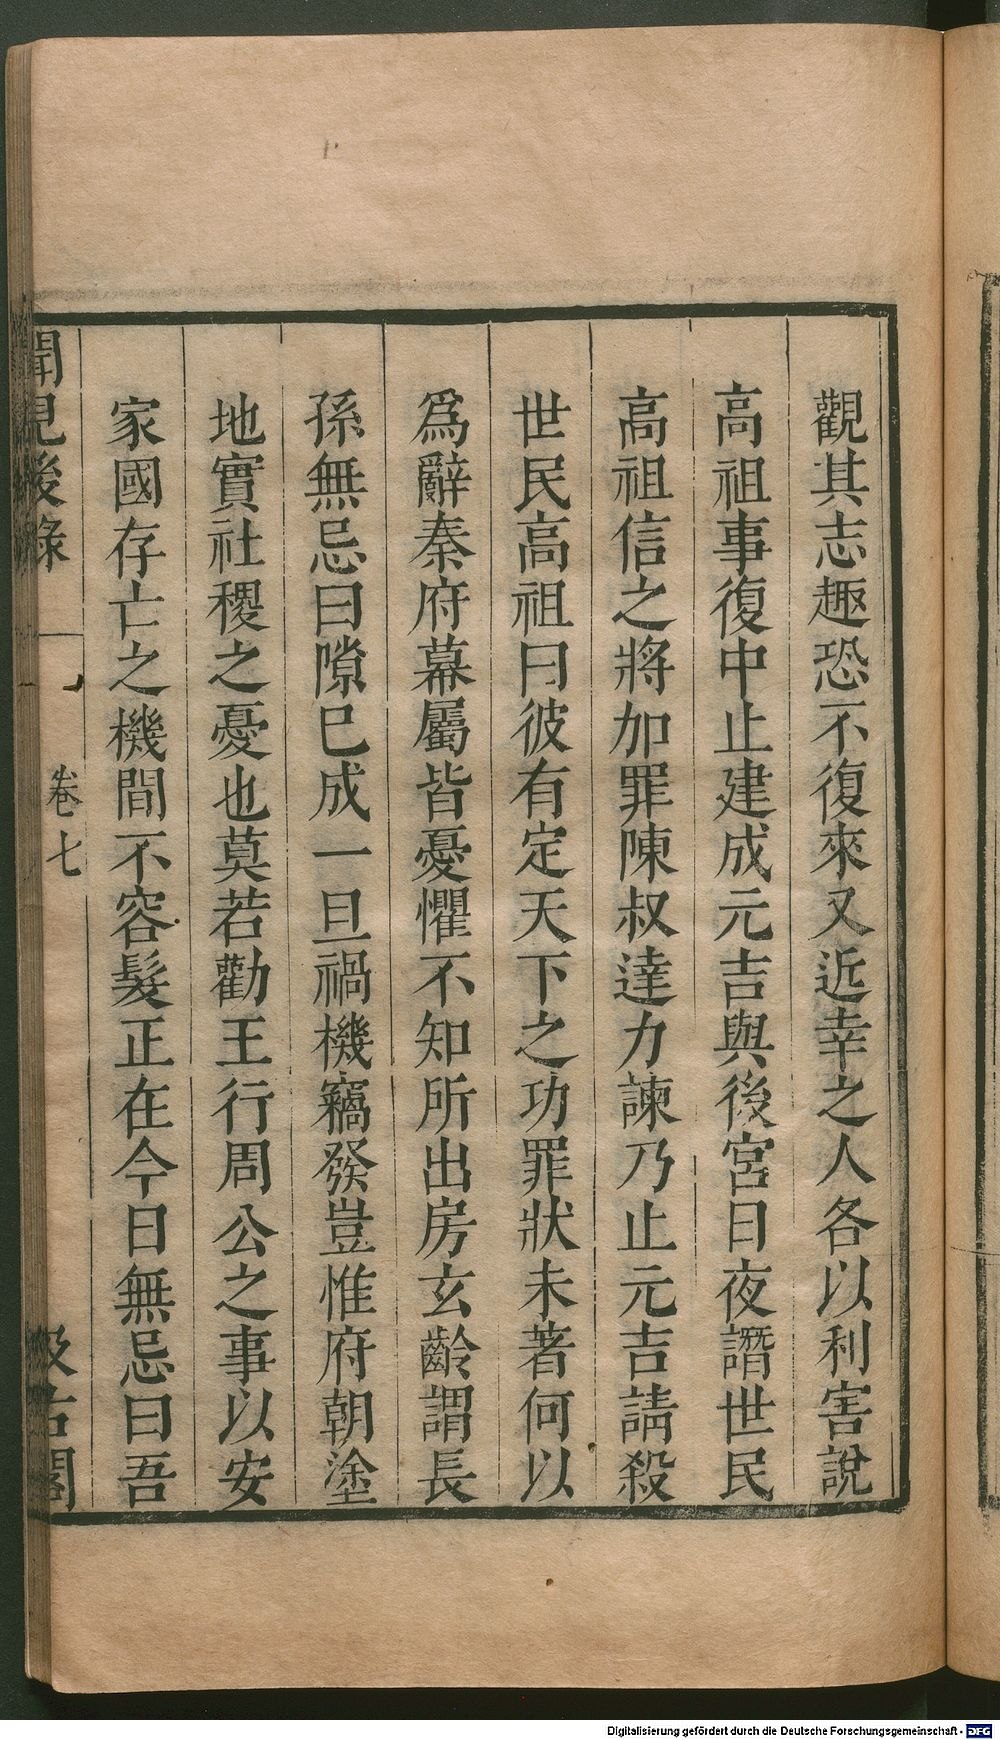 觀其志趣恐不復來又近幸之人各以利害說
高祖事復中止建成元吉與後宮日夜譖世民
高祖信之將加罪陳叔達力諫乃止元吉請殺
世民高祖曰彼有定天下之功罪狀未著何以
爲辭秦府幕屬皆憂懼不知所出房玄齡謂長
孫無忌曰隙已成一旦禍機竊發豈惟府朝塗
地實社稷之憂也莫若勸王行周公之事以安
家國存亡之機間不容髮正在今日無忌曰吾
聞見後錄
卷七
汲古閣
Digitalisierung gefördert durch die Deutsche Forschungsgemeinschaft - DFG